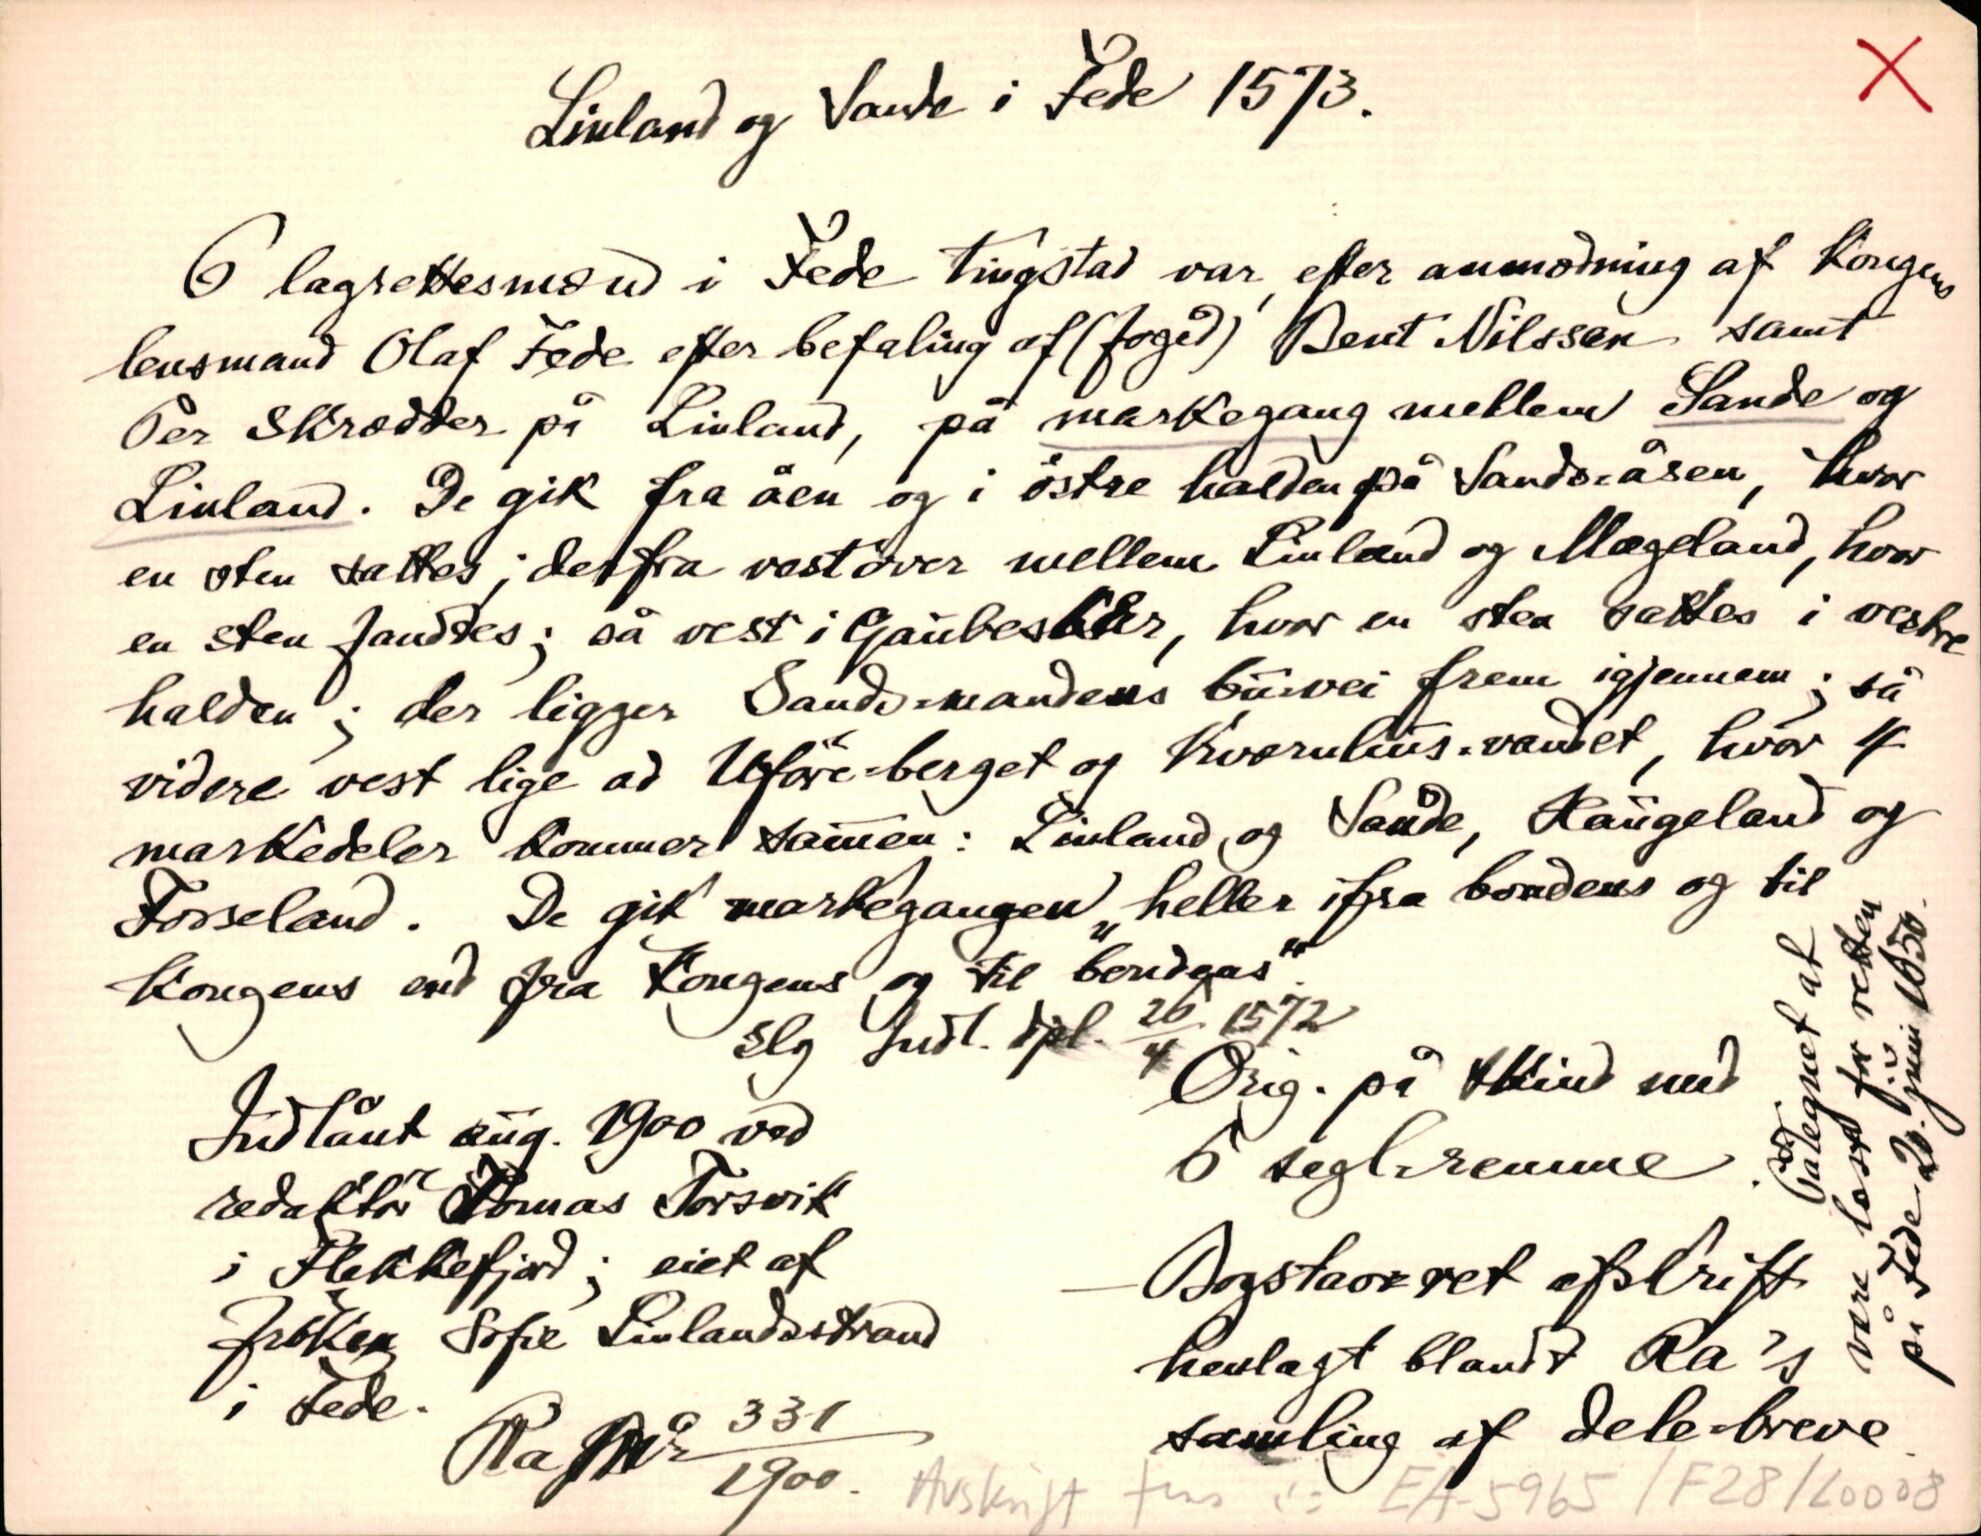 Linland og Sande i Fede 1573.
6 lagrettesmænd i Fede tingstad var, efter anmodning af Kongens
lensmand Olaf Fede efter befaling af (fogd) Bent Nilssen samt
Per Skrædder på Linland, på markegang mellem Sande og
Linland. De gik fra åen og i östre halden på Sands-åsen, hvor
en sten sattes; derfra vestover mellem Linland og Mægeland, hvor
en sten fandtes; så vest i, hvor en sten sattes i vestre
halden; der ligger Sands-mandens buvei frem igjennem; så
videre vest lige ad Uföre-berget og Kværnhus-vandet, hvor 4
markedeler kommer samen: Linland og Sande, Haugeland og
Forseland. De gik markegangen „heller ifra bondens og til
Kongens end fra Kongens og til bondens".
Slg Indl. dpl. 26/4 1572
Indlånt aug. 1900 ved
redaktör Tomas Torsvik
i Flekkefjord; eiet af
fröken Sofie Linlandsstrand
i Fede.
Ra 331/1900.
Orig. på skind med
6 segl-remme.
Påtegnet at
være læst for retten
på Fede 20. juni 1650.
— Bogstavret afskrift
henlagt blandt Ra's
samling af dele-breve.
Avskrift finns i: EA-5965/F28/L0008
X